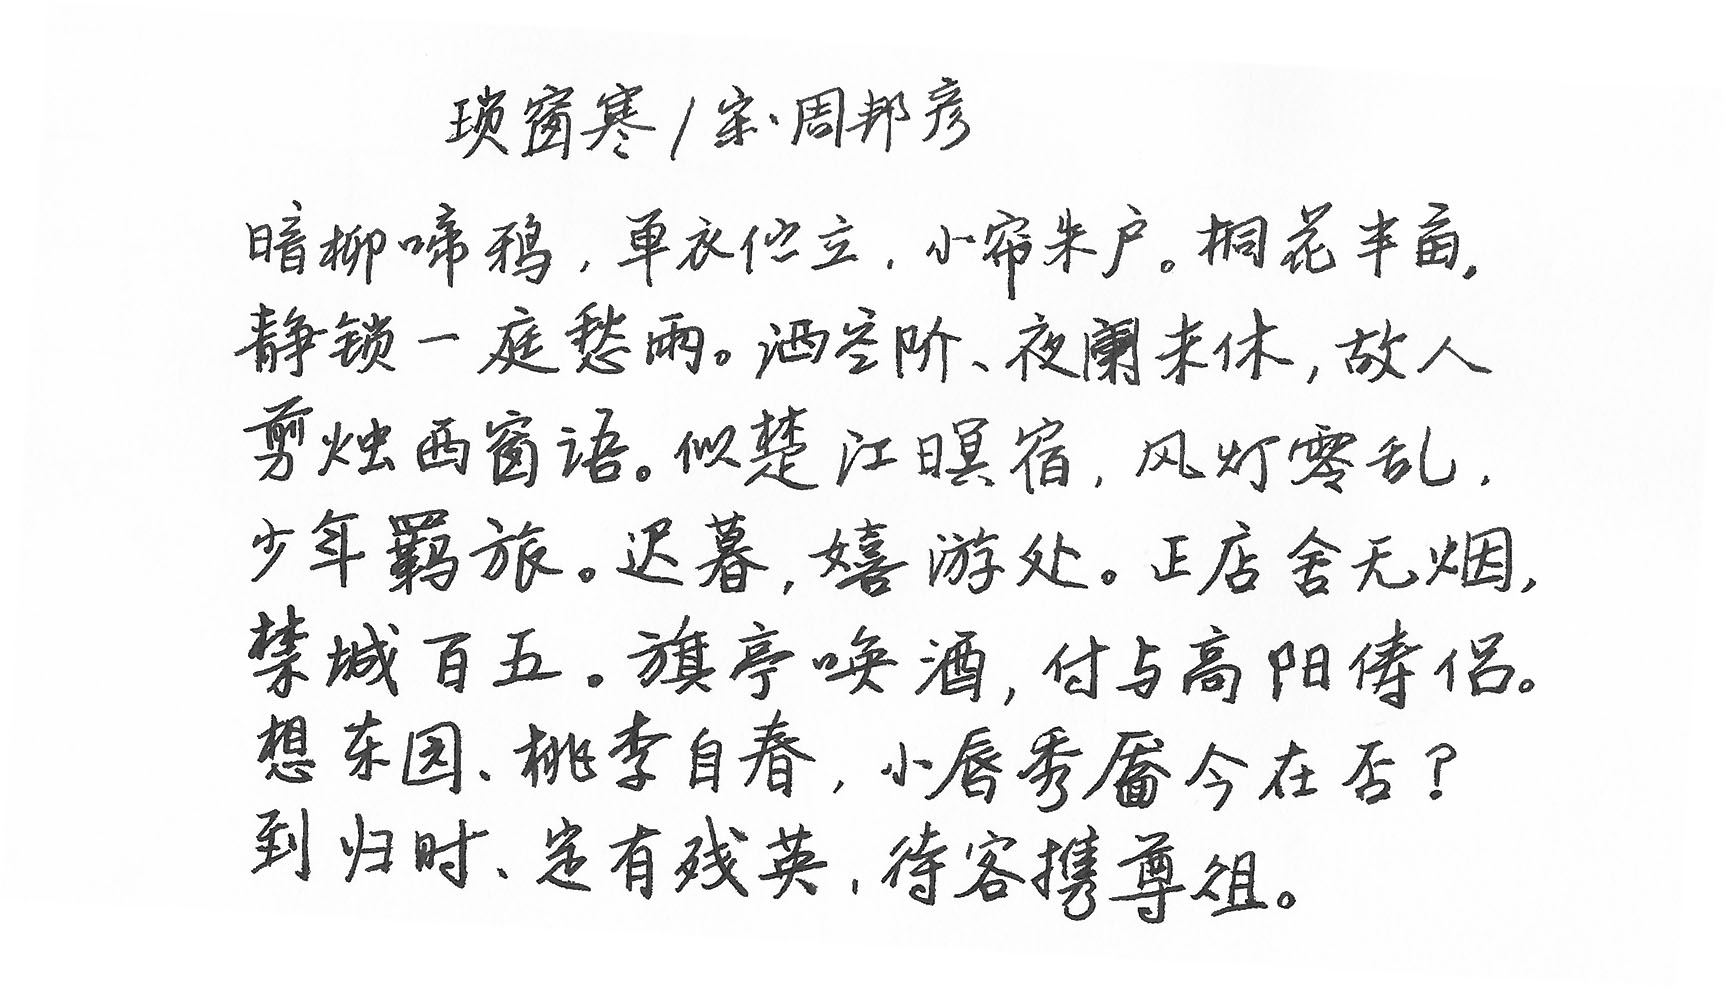 琐窗寒/宋·周邦彦
暗柳啼鸦，单衣伫立，小帘朱户。桐花半亩，
静锁一庭愁雨。洒空阶、夜阑未休，故人
剪烛西窗语。似楚江暝宿，风灯零乱，
少年羁旅。迟暮，嬉游处。正店舍无烟，
禁城百五。旗亭唤酒，付与高阳俦侣。
想东园、桃李自春，小唇秀靥今在否？
到归时、定有残英，待客携尊俎。